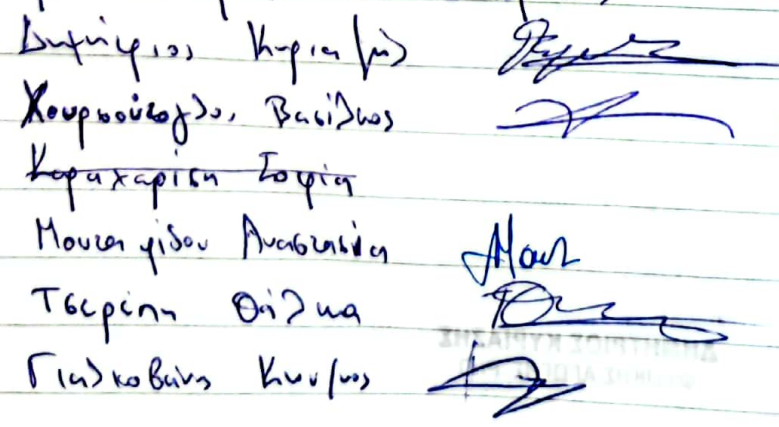 Δημήτριος Κυριαζής
Χουρσούτογλου Βασίλειος
Καραχαρίση Σοφία
Μουταφίδου Αναστασία
Τσερέπη Θάλεια
Κων/νος
ΔΗΜΗΤΡΙΟΣ ΚΥΡΙΑΖΗΣ